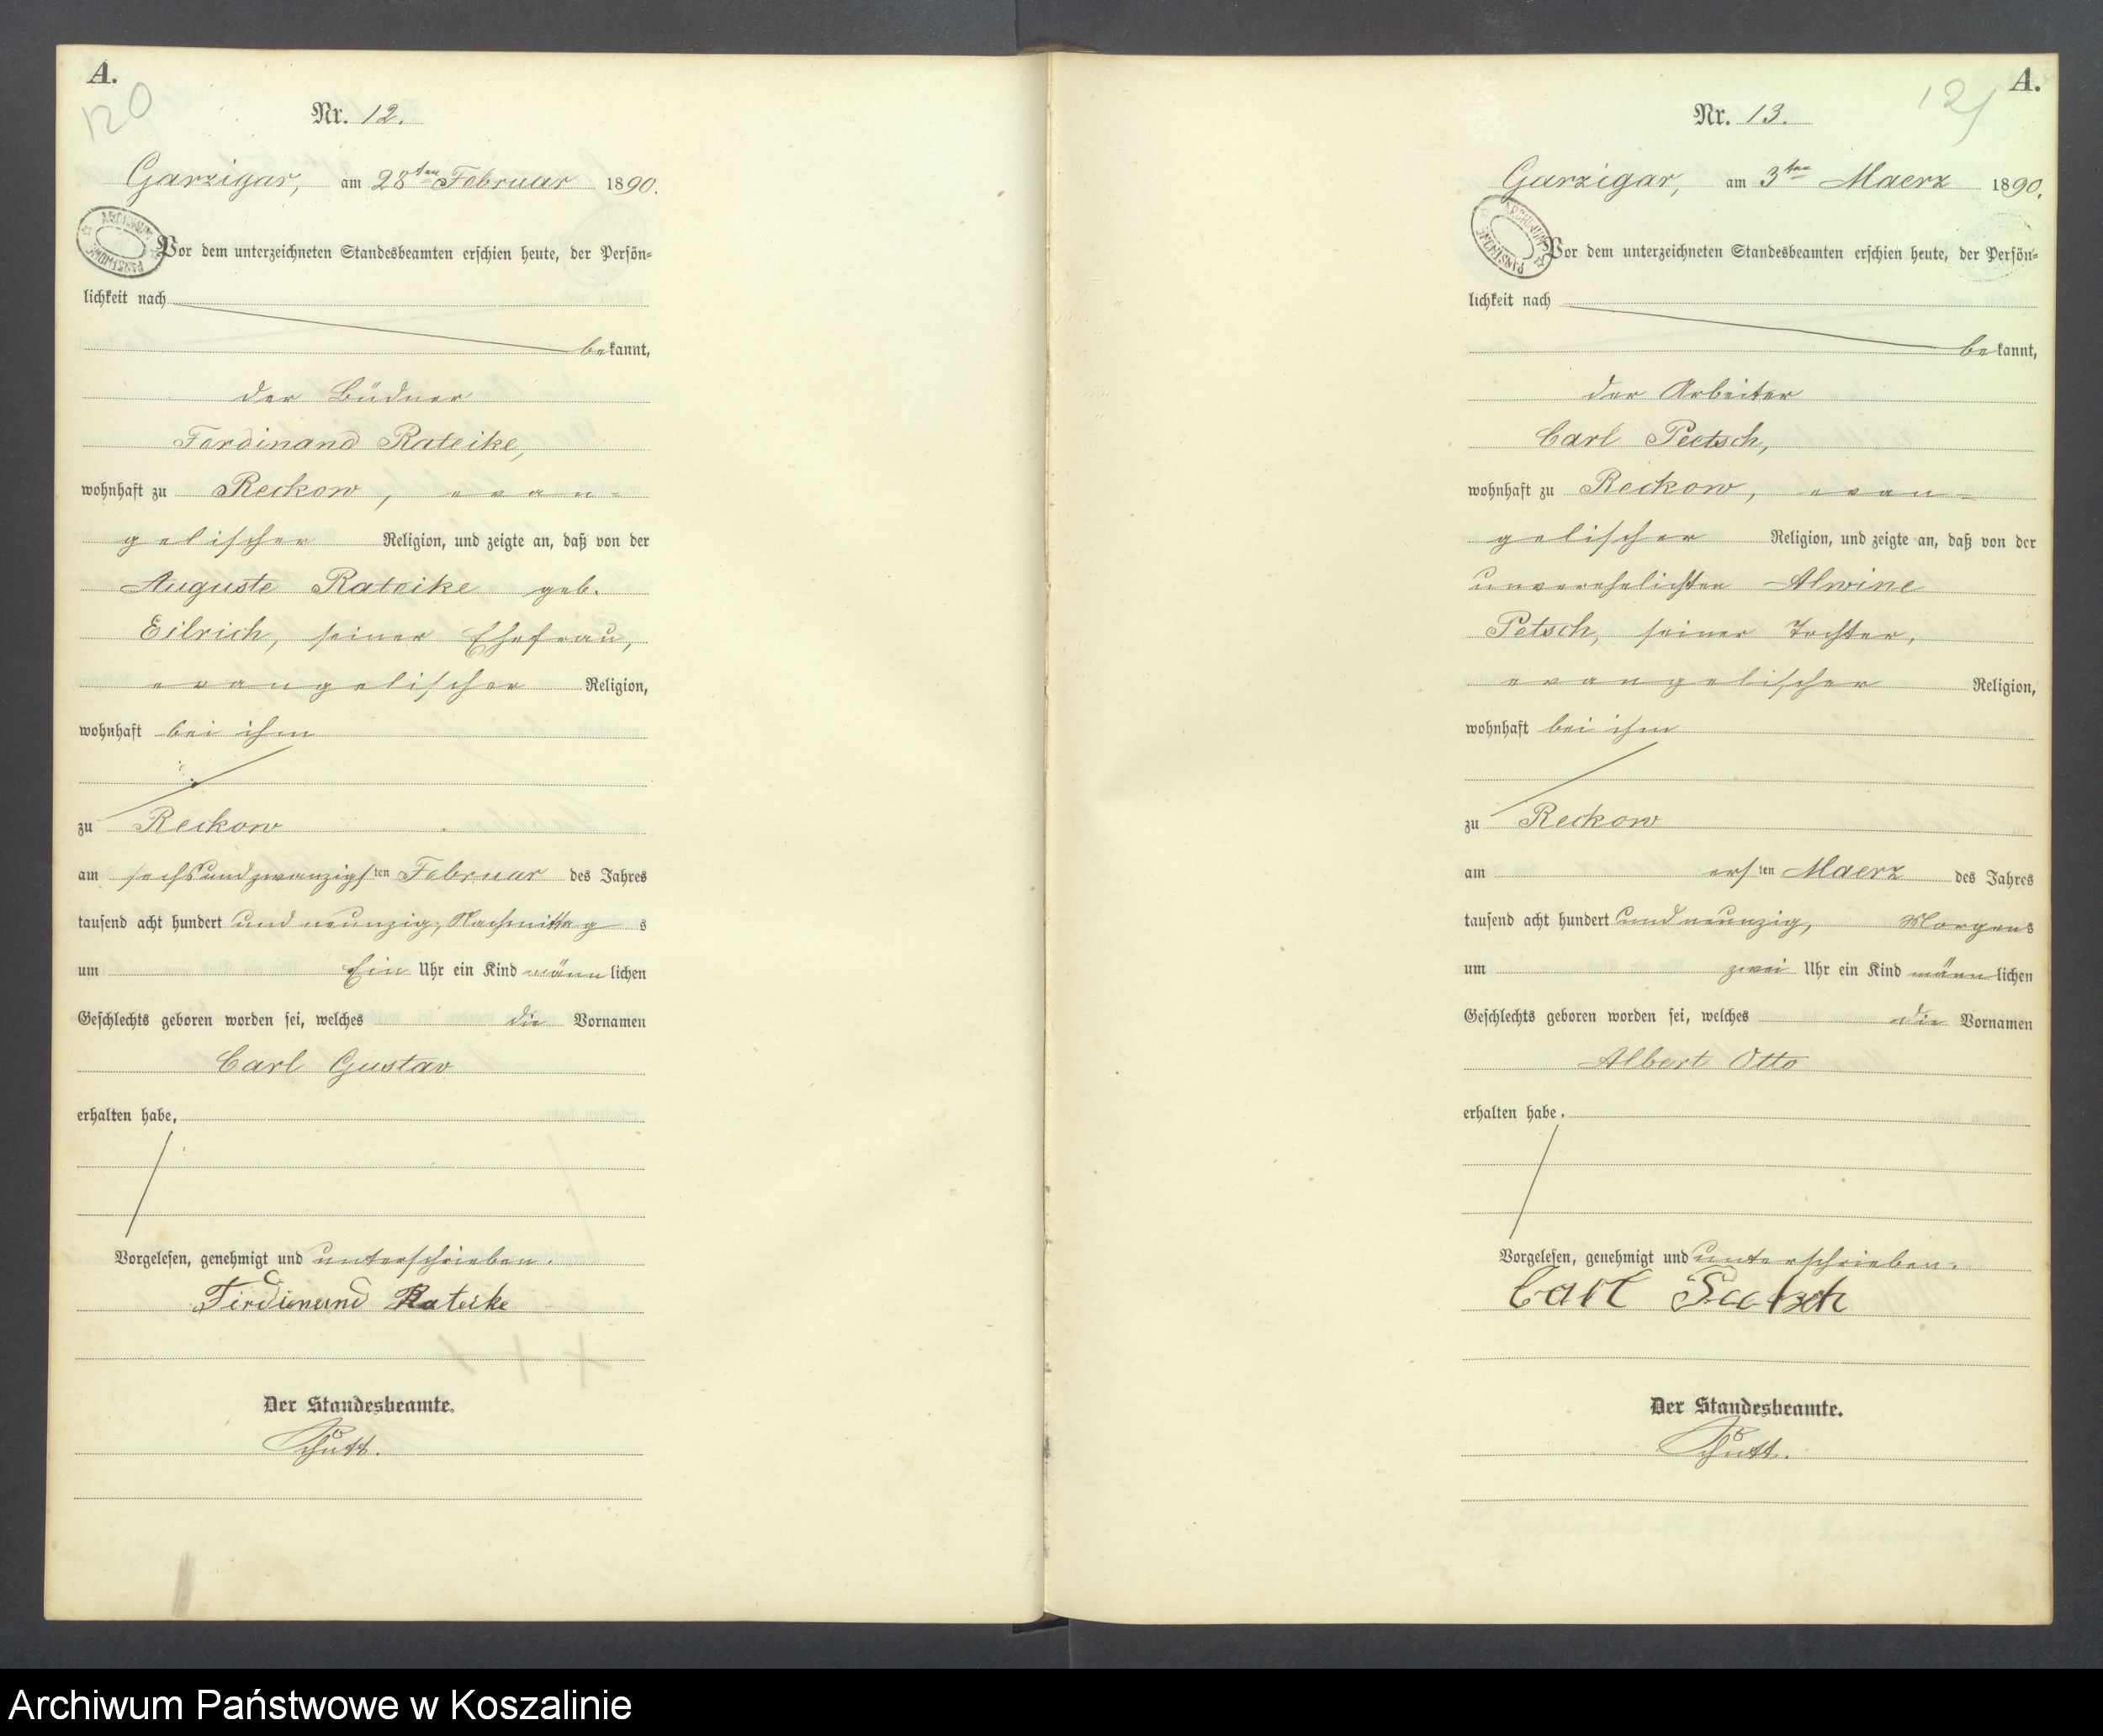 A.
120
Nr. 12.
Garzigar, am 28ten Februar 1890.
ARCHIWUM PAŃSTWOWE
Vor dem unterzeichneten Standesbeamten erschien heute, der Persön=
lichkeit nach
bekannt,
der Büdner
Ferdinand Rateike,
wohnhaft zu Reckow, evan=
gelischer Religion, und zeigte an, daß von der
Auguste Rateike geb.
Eilrich, seiner Ehefrau,
evangelischer Religion,
wohnhaft bei ihm
zu Reckow
am sechsundzwanzigsten Februar des Jahres
tausend acht hundert und neunzig, Nachmittags
um Ein Uhr ein Kind männlichen
Geschlechts geboren worden sei, welches die Vornamen
Carl Gustav
erhalten habe.
Vorgelesen, genehmigt und unterschrieben.
Ferdienand Rateike
Der Standesbeamte.
Schütt.
A.
121
Nr. 13.
Garzigar, am 3ten Maerz 1890.
ARCHIWUM PAŃSTWOWE
Vor dem unterzeichneten Standesbeamten erschien heute, der Persön=
lichkeit nach
bekannt,
der Arbeiter
Carl Peetsch,
wohnhaft zu Reckow, evan=
gelischer Religion, und zeigte an, daß von der
unverehelichten Alwine
Petsch, seiner Tochter,
evangelischer Religion,
wohnhaft bei ihm
zu Reckow
am ersten Maerz des Jahres
tausend acht hundert und neunzig, Morgens
um zwei Uhr ein Kind männlichen
Geschlechts geboren worden sei, welches die Vornamen
Albert Otto
erhalten habe.
Vorgelesen, genehmigt und unterschrieben.
Carl
Der Standesbeamte.
Schütt.
Archiwum Państwowe w Koszalinie